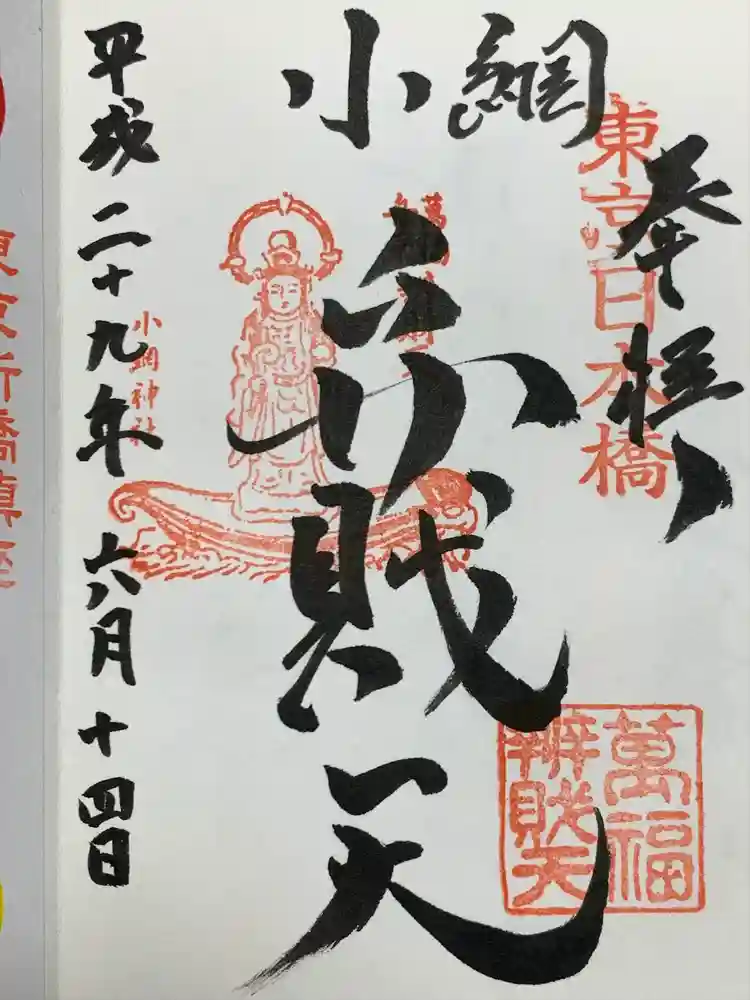 奉拝
東京日本橋
小網
弁戝天
萬福
辨戝天
小網神社
平成二十九年六月十四日
東京新橋鎮座